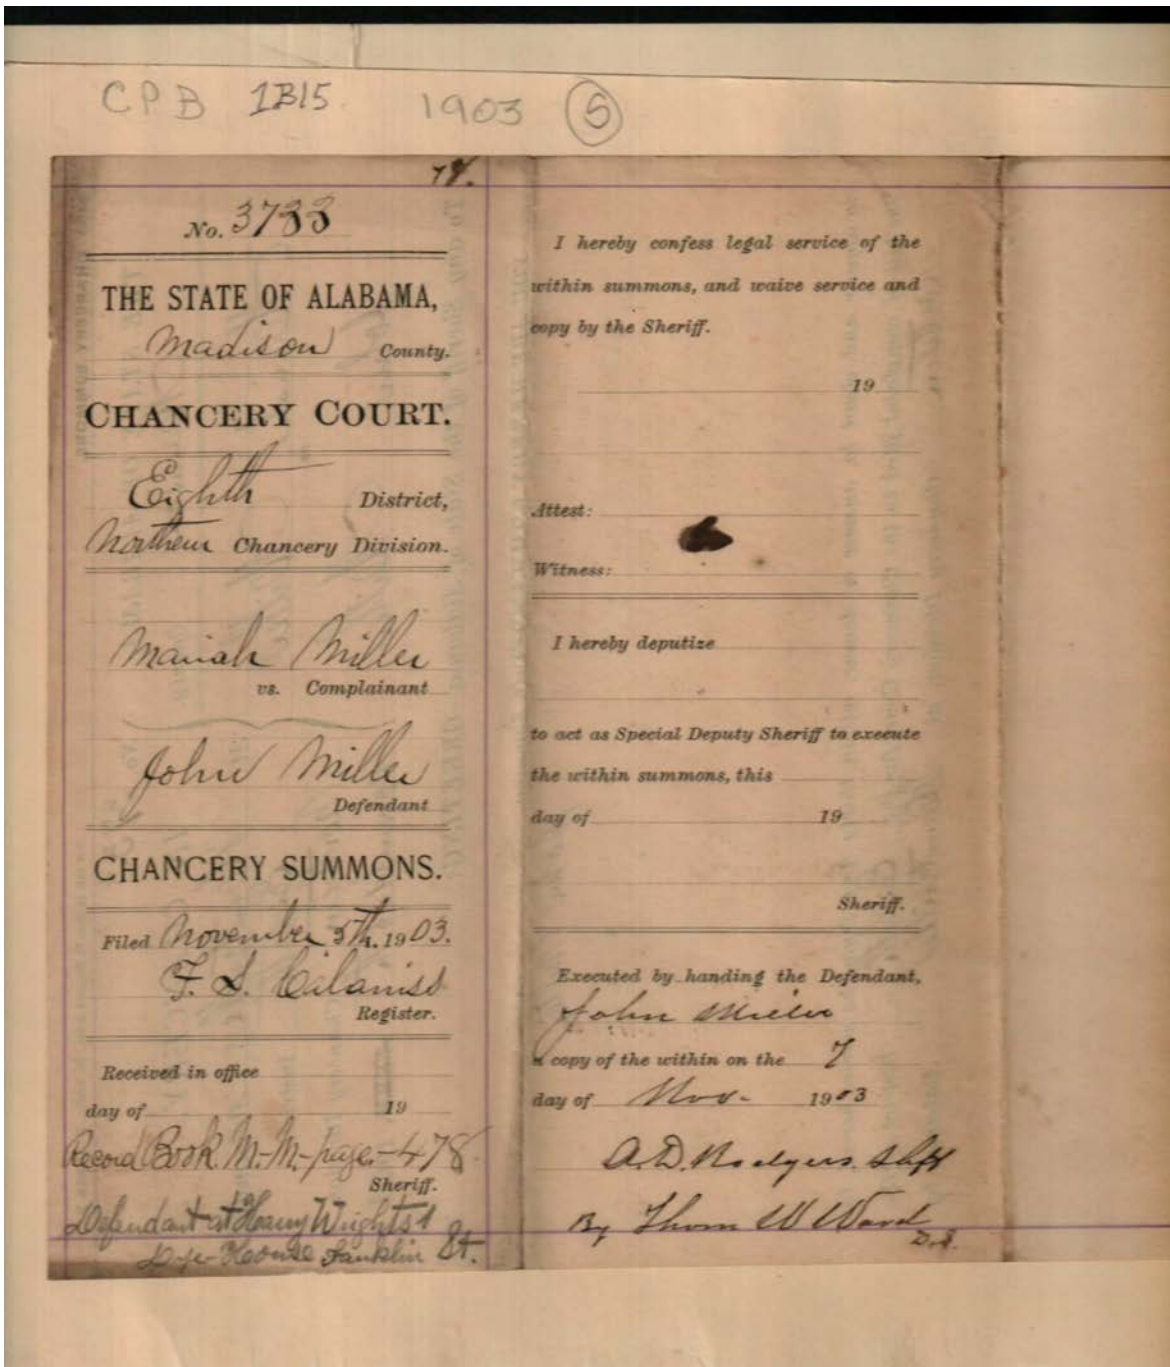 CPB 1B15 1903 5
74.
No. 3733
THE STATE OF ALABAMA,
Madison County.
CHANCERY COURT.
Eighth District,
Northern Chancery Division.
Mariah Miller
vs. Complainant
John Miller
Defendant
CHANCERY SUMMONS.
Filed November 5th. 1903.
F. S.
Register.
Received in office
day of 19
Record Book M.-M.-page-478
Sheriff.
Defendant at Wrights
Dye-House Franklin St.
I hereby confess legal service of the
within summons, and waive service and
copy by the Sheriff.
19
Attest:
Witness:
I hereby deputize
to act as Special Deputy Sheriff to execute
the within summons, this
day of 19
Sheriff.
Executed by handing the Defendant,
John Miller
a copy of the within on the 7
day of Nov. 1903
A.D. Rodgers Shff
By Thom W Ward
D.S.